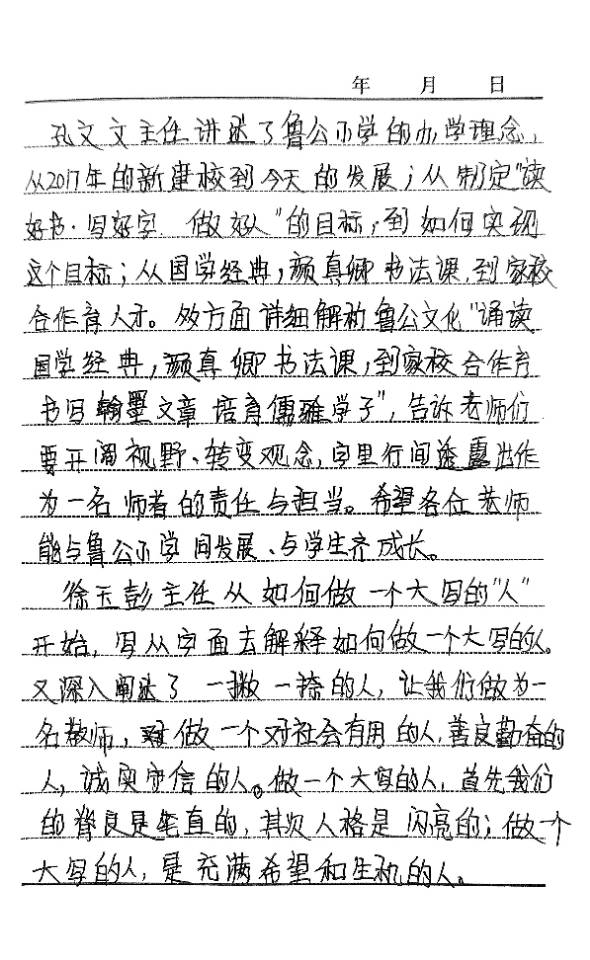 年 月 日
孔文文主任讲述了鲁公小学的办学理念，
从2017年的新建校到今天的发展；从制定"读
好书·写好字 做好人"的目标，到如何实现
这个目标；从国学经典，颜真卿书法课，到家校
合作育人才。多方面详细解析鲁公文化"诵读
国学经典，颜真卿书法课，到家校合作育
书写翰墨文章 培育儒雅学子"，告诉老师们
要开阔视野、转变观念，字里行间透露出作
为一名师者的责任与担当。希望各位老师
能与鲁公小学同发展、与学生齐成长。
徐玉彭主任从如何做一个大写的"人"
开始，写从字面去解释如何做一个大写的人。
又深入阐述了一撇一捺的人，让我们做为一
名教师，做一个对社会有用的人，善良勤奋的
人，诚实守信的人。做一个大写的人，首先我们
的脊良是笔直的，其次人格是闪亮的；做一个
大写的人，是充满希望和生机的人。